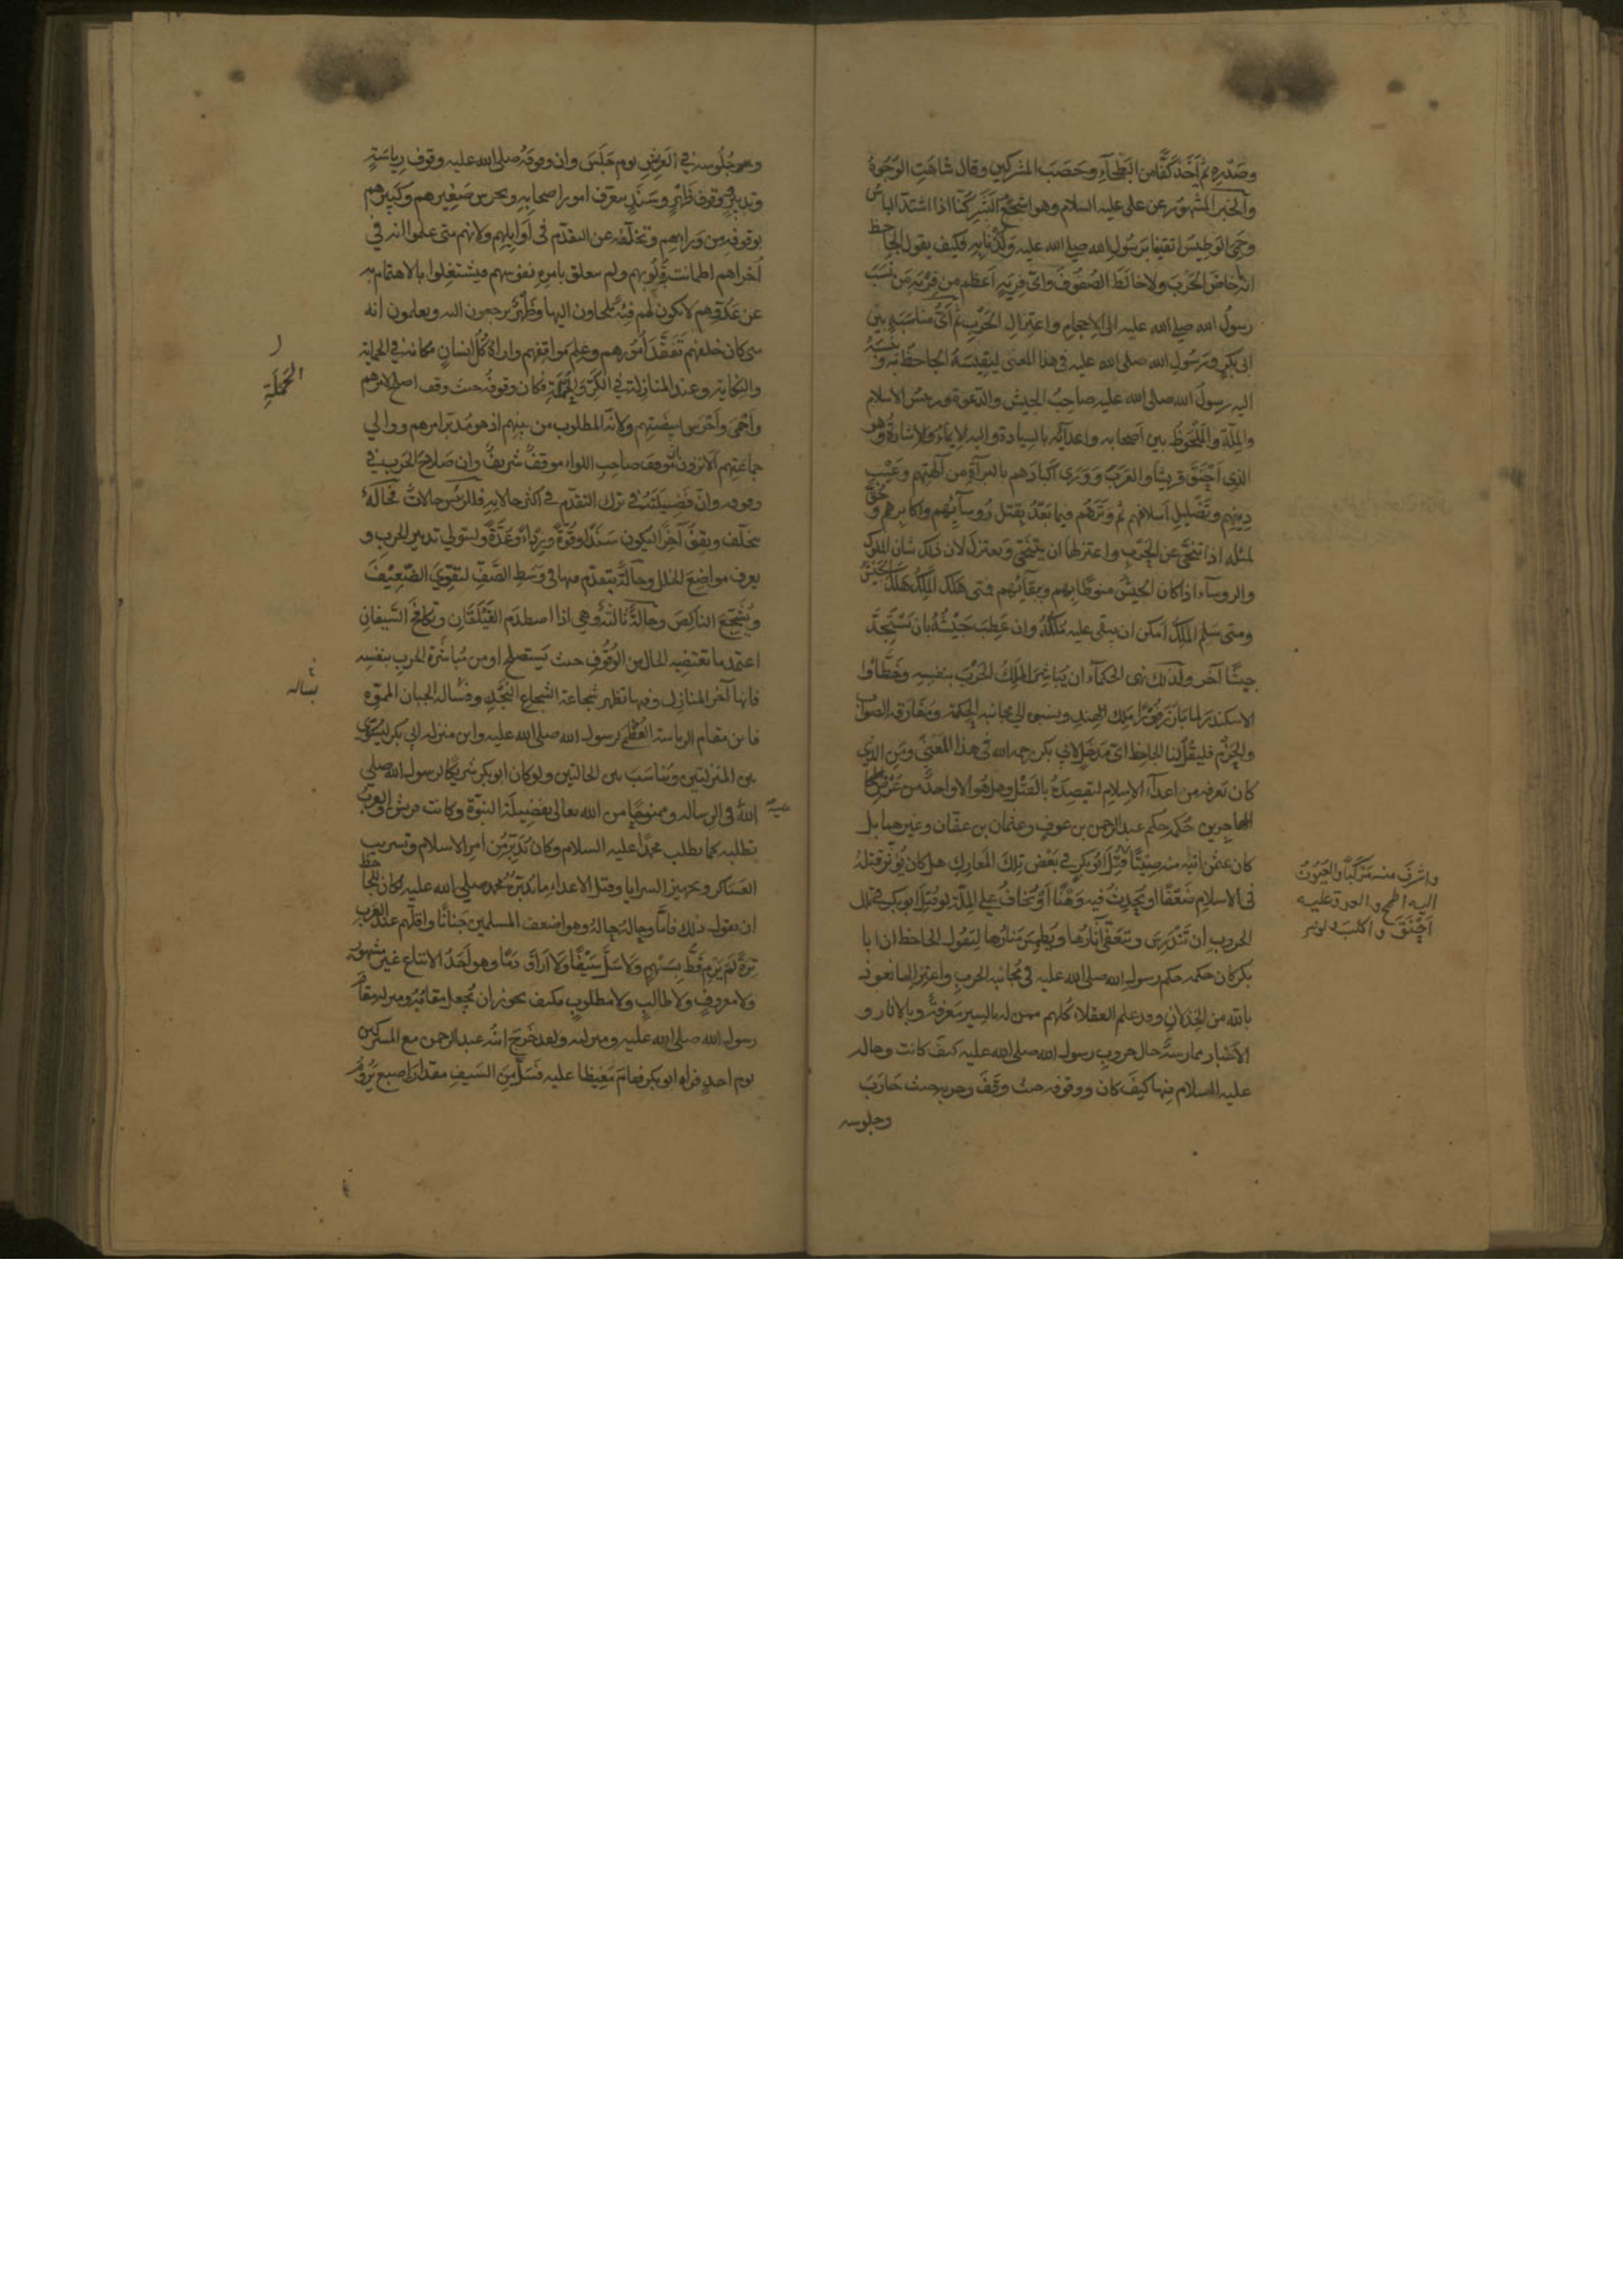 وصدره ثم أخذ كفا من البطحاء وحصب المشركين وقال شاهت الوجوه
والخبر المشهور عن علي عليه السلام وهو اشجع البشر كنا اذا اشتد الباس
وحمي الوطيس اتقينا برسول الله صلى الله عليه ولذنا به فكيف يقول الجاحظ
انه ما خاض الحرب ولا خالط الصفوف واي فرية اعظم من فرية من نسب
رسول الله صلى الله عليه الى الاحجام واعتزال الحرب ثم اي مناسبة بين
ابي بكر ورسول الله صلى الله عليه في هذا المعنى ليقيسه الجاحظ به وينسبه
اليه رسول الله صلى الله عليه صاحب الجيش والدعوة ورئيس الاسلام
والملة والملحوظ بين اصحابه واعدائه بالسيادة واليه الايماء والاشارة وهو
الذي احنق قريشا والعرب وورى اكبادهم بالبراءة من آلهتهم وعيب
دينهم وتضليل اسلافهم ثم وترهم فيما بعد بقتل رؤسائهم واكابرهم وحق
لمثله اذا تنحى عن الحرب واعتزلها ان يتنحى ويعتزل لان ذلك شان الملوك
والروساء اذا كان الجيش منوطا بهم وببقائهم فمتى هلك الملك هلك الجيش
ومتى سلم الملك امكن ان يبقى عليه ملكه وان عطب جيشه بان يستجد
جيشا آخر ولذلك نهى الحكماء ان يباشر الملك الحرب بنفسه وخطأوا
الاسكندر لما بارز فورا ملك الهند ونسبوه الى مجانبة الحكمة ومفارقة الصواب
والحزم فليقل لنا الجاحظ اي مدخل لابي بكر رحمه الله في هذا المعنى ومن الذي
كان يعرفه من اعداء الاسلام ليقصده بالقتل وهل هو الا واحد من عرض
المهاجرين حكمه حكم عبد الرحمن بن عوف وعثمان بن عفان وغيرهما بل
كان عثمن ابنه منه صيتا قتل ابو بكر في بعض تلك المعارك هل كان يؤثر قتله
في الاسلام ضعفا او يحدث فيه وهنا او يخاف على الملة لو قتل ابو بكر في تلك
الحروب ان تندرس وتعفى آثارها ويطمس منارها ليقول الجاحظ ان ابا
بكر كان حكمه حكم رسول الله صلى الله عليه في مجانبة الحرب واعتزالها نعوذ
بالله من الخذلان وقد علم العقلاء كلهم ممن له بالسير معرفة وبالاثار و
الاخبار ممارسة حال حروب رسول الله صلى الله عليه كيف كانت وحاله
عليه السلام فيها كيف كان ووقوفه حيث وقف وحربه حيث حارب
وجلوسه
واشرف منه مركبا والعيون
اليه اطمح والعدو عليه
احنق واكلب ولو
وجلوسه في العريش يوم جلس وان وقوفه صلى الله عليه وقوف رياسة
وتدبير ووقوف ظهر وسند يتعرف امور اصحابه ويحرس صغيرهم وكبيرهم
بوقوفه من ورائهم وتخلفه عن التقدم في اوايلهم ولانهم متى علموا انه في
اخراهم اطمانت قلوبهم ولم يتعلق بامره نفوسهم فيشتغلوا بالاهتمام به
عن عدوهم لا يكون لهم فئة يلجاون اليها وظهر يرجعون اليه ويعلمون انه
متى كان خلفهم تفقد امورهم وعلم مواقفهم واراد كل انسان مكانه في الحماية
والنكاية وعند المنازلة في الكر والحملة فكان وقوفه حيث وقف اصلح لامرهم
واحمى واحرس لبيضتهم ولانه المطلوب من بينهم اذ هو مدبر امرهم ووالي
جماعتهم الا ترون ان موقف صاحب اللواء موقف شريف وان صلاح الحرب في
وقوفه وان فضيلته في ترك التقدم في اكثر حالاته فللرئيس حالات فحالة
يتخلف ويقف آخرا ليكون سندا وقوة وردءا وعدة وليتولى تدبير الحرب و
يعرف مواضع الخلل وحالة يتقدم فيها في وسط الصف ليقوي الضعيف
ويشجع الناكص وحالة ثالثة وهي اذا اصطدم الفيلقان وتكافح السيفان
اعتمد ما تقتضيه الحال من الوقوف حيث يستصلح او من مباشرة الحرب بنفسه
فانها آخر المنازل وفيها تظهر شجاعة الشجاع النجد وفشالة الجبان المموه
فاين مقام الرياسة العظمى لرسول الله صلى الله عليه واين منزلة ابي بكر ليسوي
بين المنزلتين ويناسب بين الحالتين ولو كان ابو بكر شريكا لرسول الله صلى
الله في الرسالة وممنوحا من الله تعالى بفضيلة النبوة وكانت قريش والعرب
عليه
تطلبه كما يطلب محمدا عليه السلام وكان يدبر من امر الاسلام وتسريب
العساكر وتجهيز السرايا وقتل الاعداء ما يدبره محمد صلى الله عليه لكان للجاحظ
ان يقول ذلك فاما وحاله حاله وهو اضعف المسلمين جنانا واقلهم عند العرب
ترة لم يرم قط بسهم ولا سل سيفا ولا اراق دما وهو احد الاتباع غير مشهور
ولا معروف ولا طالب ولا مطلوب فكيف يجوز ان يجعل مقامه ومنزلته مقام
رسول الله صلى الله عليه ومنزلته ولقد خرج ابنه عبد الرحمن مع المشركين
يوم احد فراه ابو بكر فقام مغيظا عليه فسل من السيف مقدار اصبع يروم
الحملة
بسالة